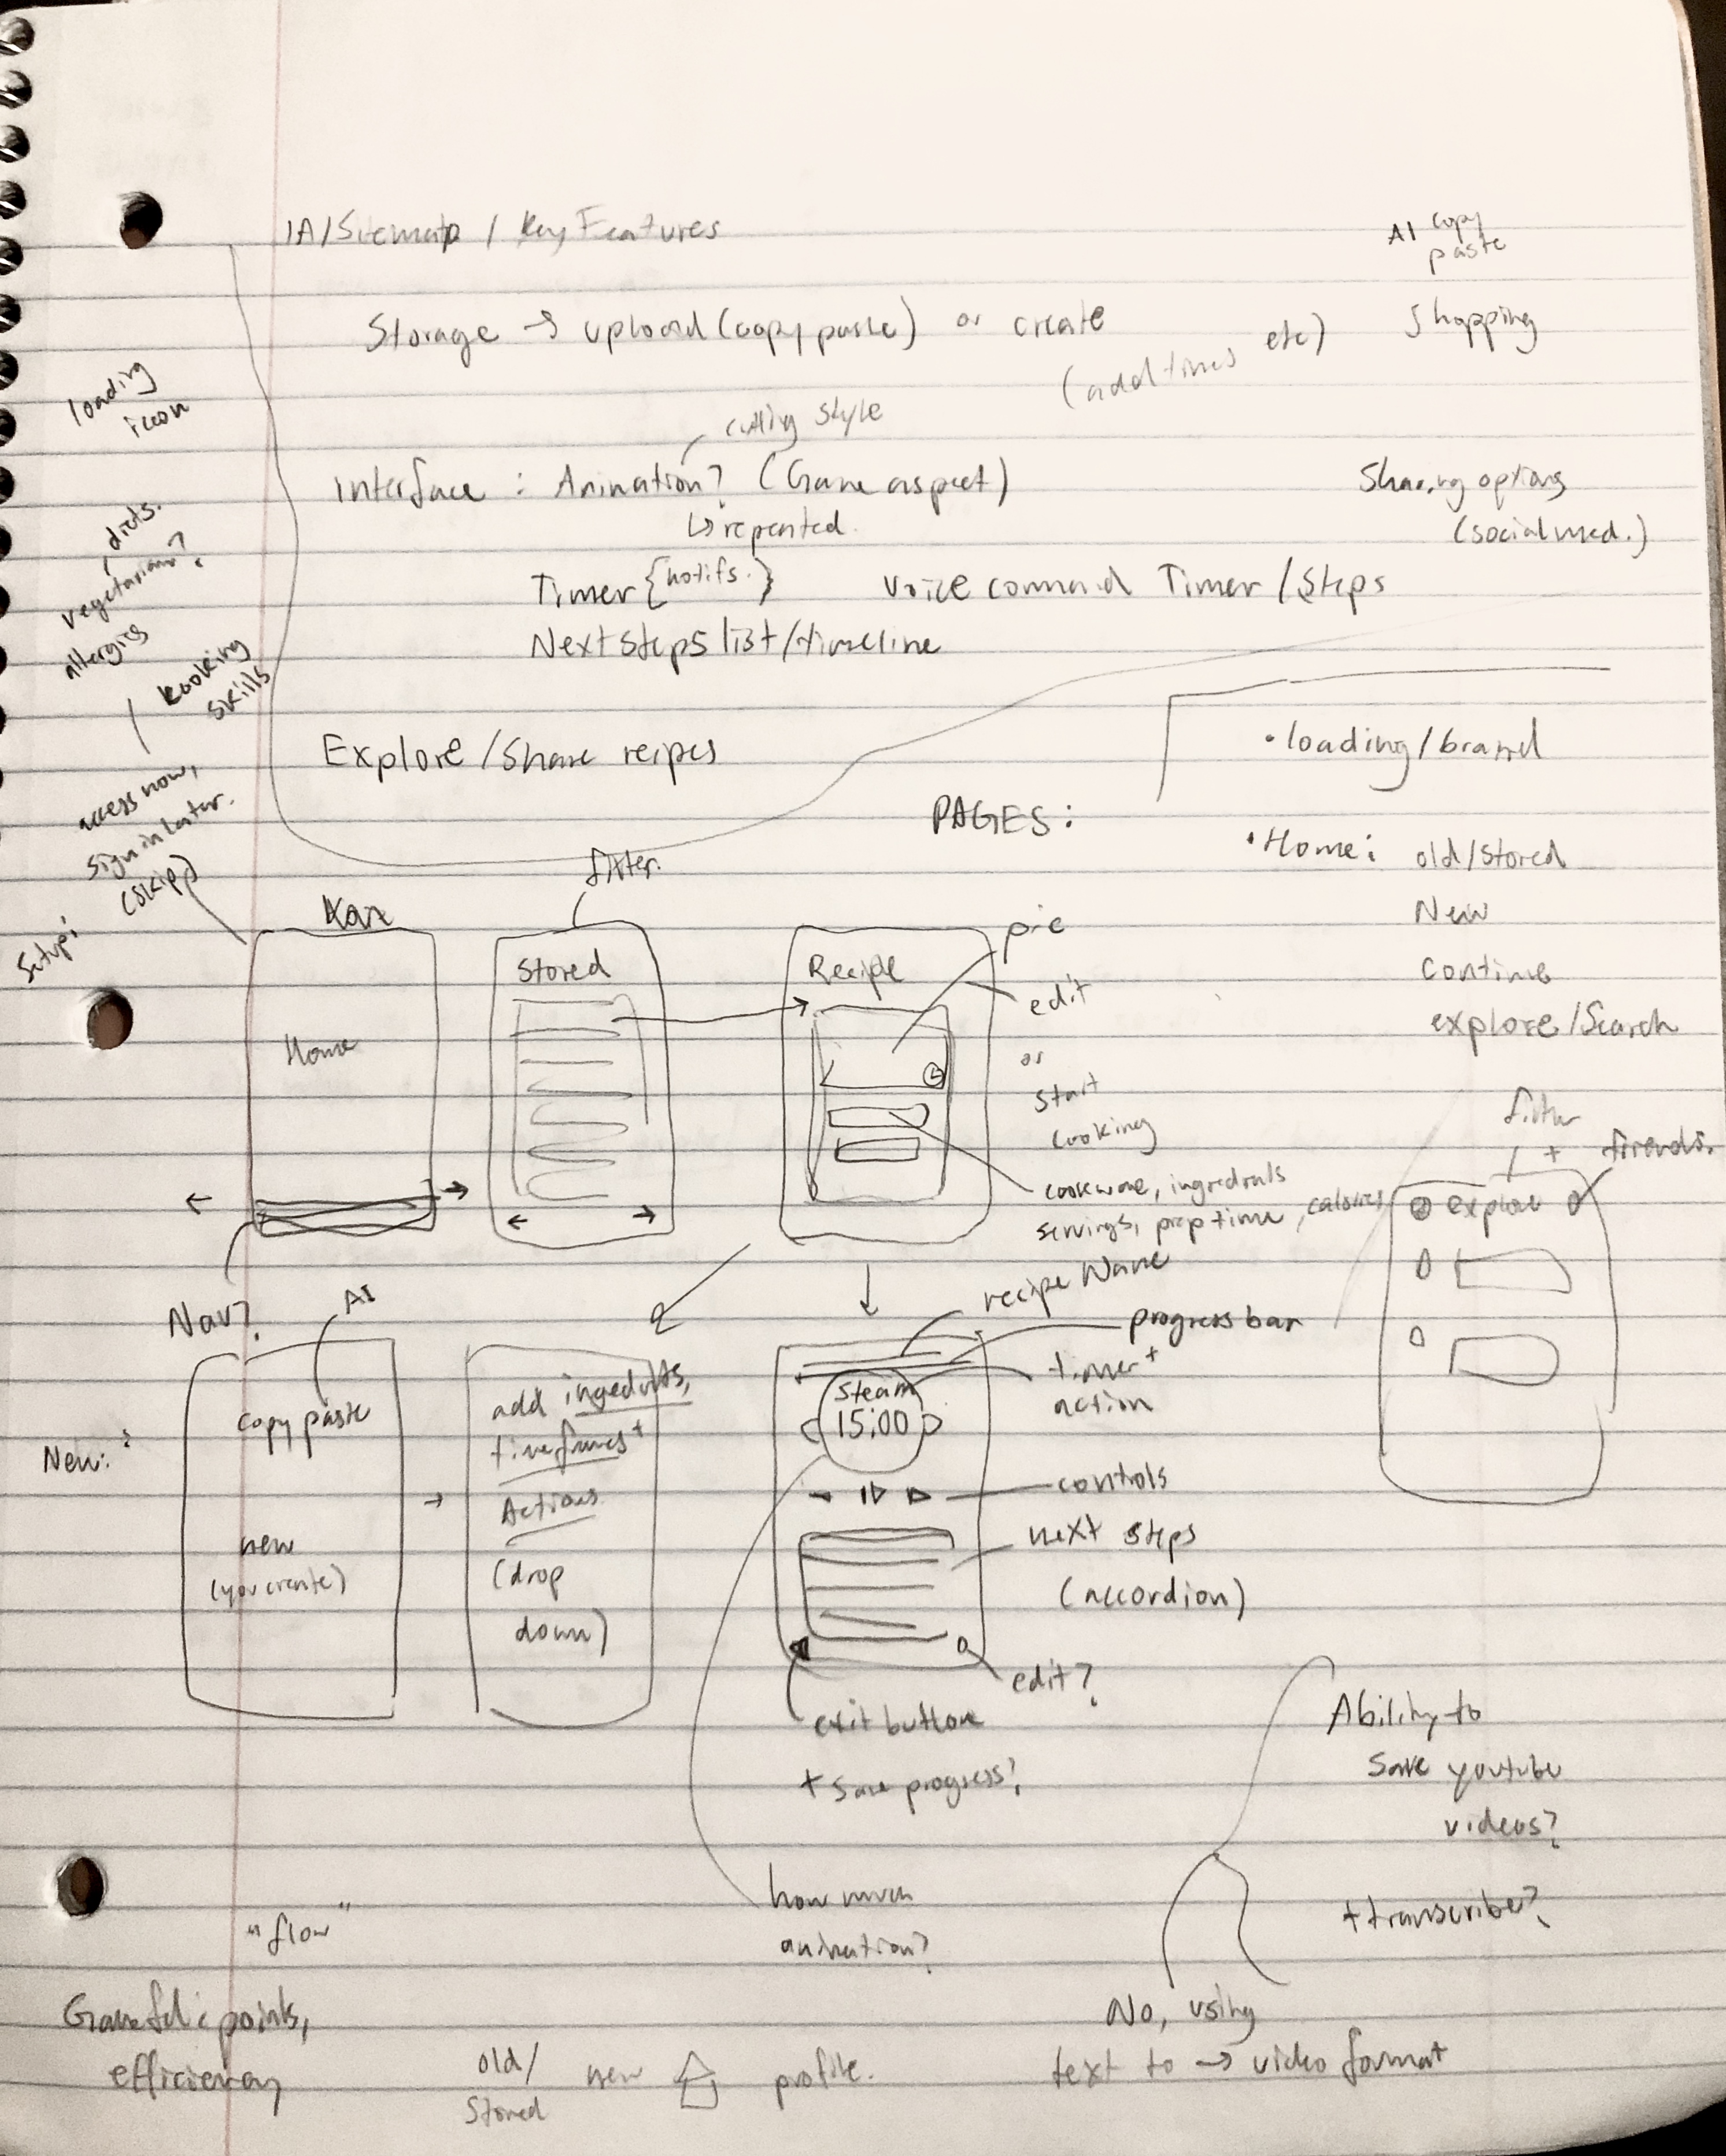 IA/Sitemap / Key Features
AI copy
paste
Storage → upload (copy paste) or create
(add times etc)
Shopping
loading
icon
cutting style
Interface : Animation? (Game aspect)
↳ repeated.
Sharing options
(social med.)
Timer {notifs.} Voice command Timer / Steps
Next steps list/timeline
diets.
vegetarian?
allergies
kooking
skills
Explore / Share reipes
access now,
sign in later.
(skip)
Setup:
PAGES:
• loading/brand
• Home: old/stored
New
continue
explore/Search
filter.
Home
Stored
Recipe
pic
edit
or
start
cooking
cookware, ingredients
servings, prep time, calories
filter
+
friends.
explore
Nav?
AI
New:
copy paste
new
(you create)
add ingedients,
timeframes +
Actions
(drop
down)
recipe Name
progress bar
timer +
action
Steam
15:00
controls
next steps
(accordion)
edit?
exit button
+ save progress?
how much
animation?
Ability to
save youtube
videos?
+ transcribe?
No, using
text to → video format
"flow"
points,
efficiency
old/
stored
new
profile.